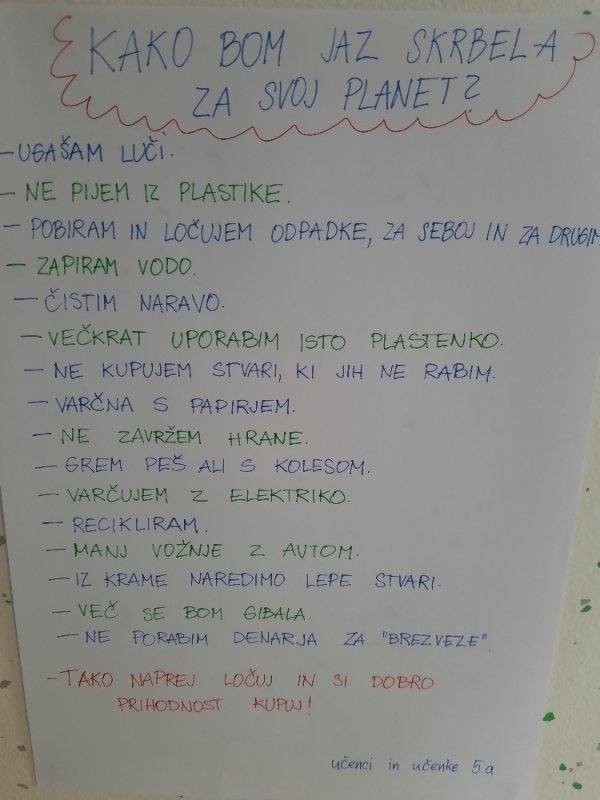 KAKO BOM JAZ SKRBELA
ZA SVOJ PLANET?
- UGAŠAM LUČI.
- NE PIJEM IZ PLASTIKE.
- POBIRAM IN LOČUJEM ODPADKE, ZA SEBOJ IN ZA DRUGIM
- ZAPIRAM VODO.
- ČISTIM NARAVO.
- VEČKRAT UPORABIM ISTO PLASTENKO.
- NE KUPUJEM STVARI, KI JIH NE RABIM.
- VARČNA S PAPIRJEM.
- NE ZAVRŽEM HRANE.
- GREM PEŠ ALI S KOLESOM.
- VARČUJEM Z ELEKTRIKO.
- RECIKLIRAM.
- MANJ VOŽNJE Z AVTOM.
- IZ KRAME NAREDIMO LEPE STVARI.
- VEČ SE BOM GIBALA.
- NE PORABIM DENARJA ZA "BREZVEZE".
- TAKO NAPREJ LOČUJ IN SI DOBRO
PRIHODNOST KUPUJ!
učenci in učenke 5.a